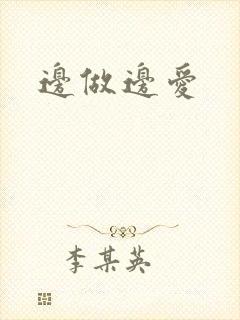 邊做邊愛
李某英